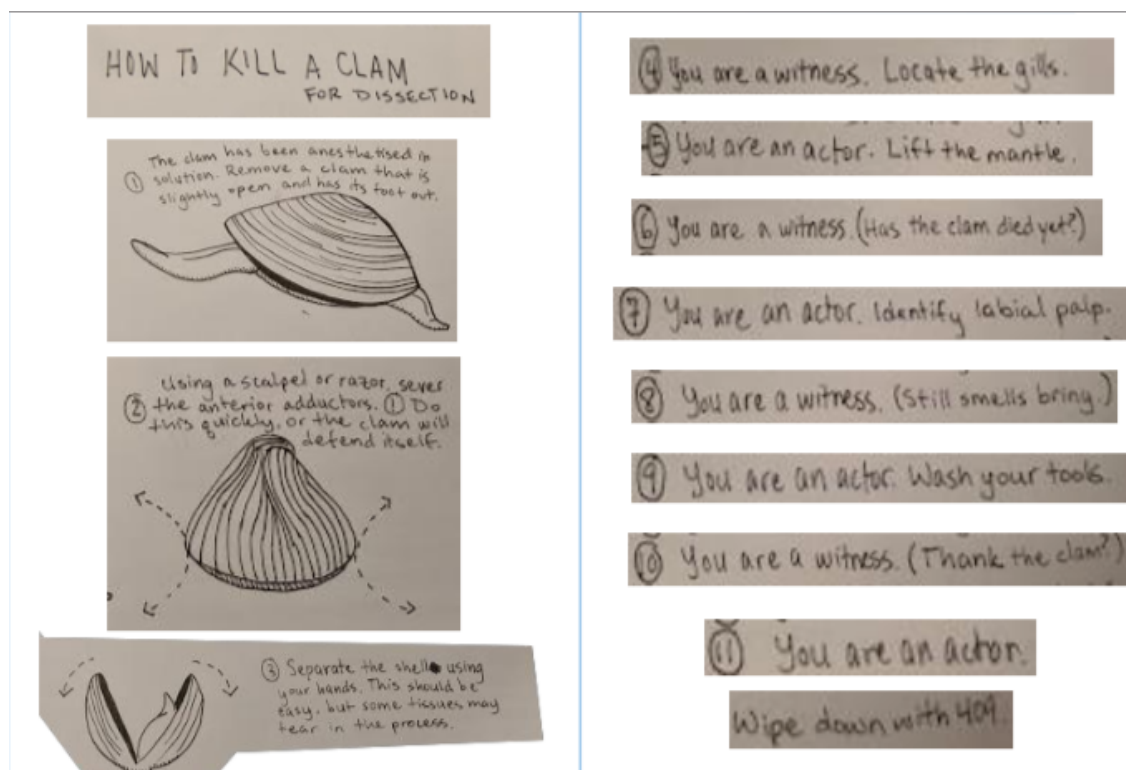 HOW TO KILL A CLAM
FOR DISSECTION
The clam has been anesthetised in
① solution. Remove a clam that is
slightly open and has its foot out.
Using a scalpel or razor, sever
② the anterior adductors. ① Do
this quickly, or the clam will
defend itself.
③ Separate the shell using
your hands. This should be
easy, but some tissues may
tear in the process.
④ You are a witness. Locate the gills.
⑤ You are an actor. Lift the mantle.
⑥ You are a witness. (Has the clam died yet?)
⑦ You are an actor. Identify labial palp.
⑧ You are a witness. (Still smells briny.)
⑨ You are an actor. Wash your tools.
⑩ You are a witness. (Thank the clam?)
⑪ You are an actor.
Wipe down with 409.